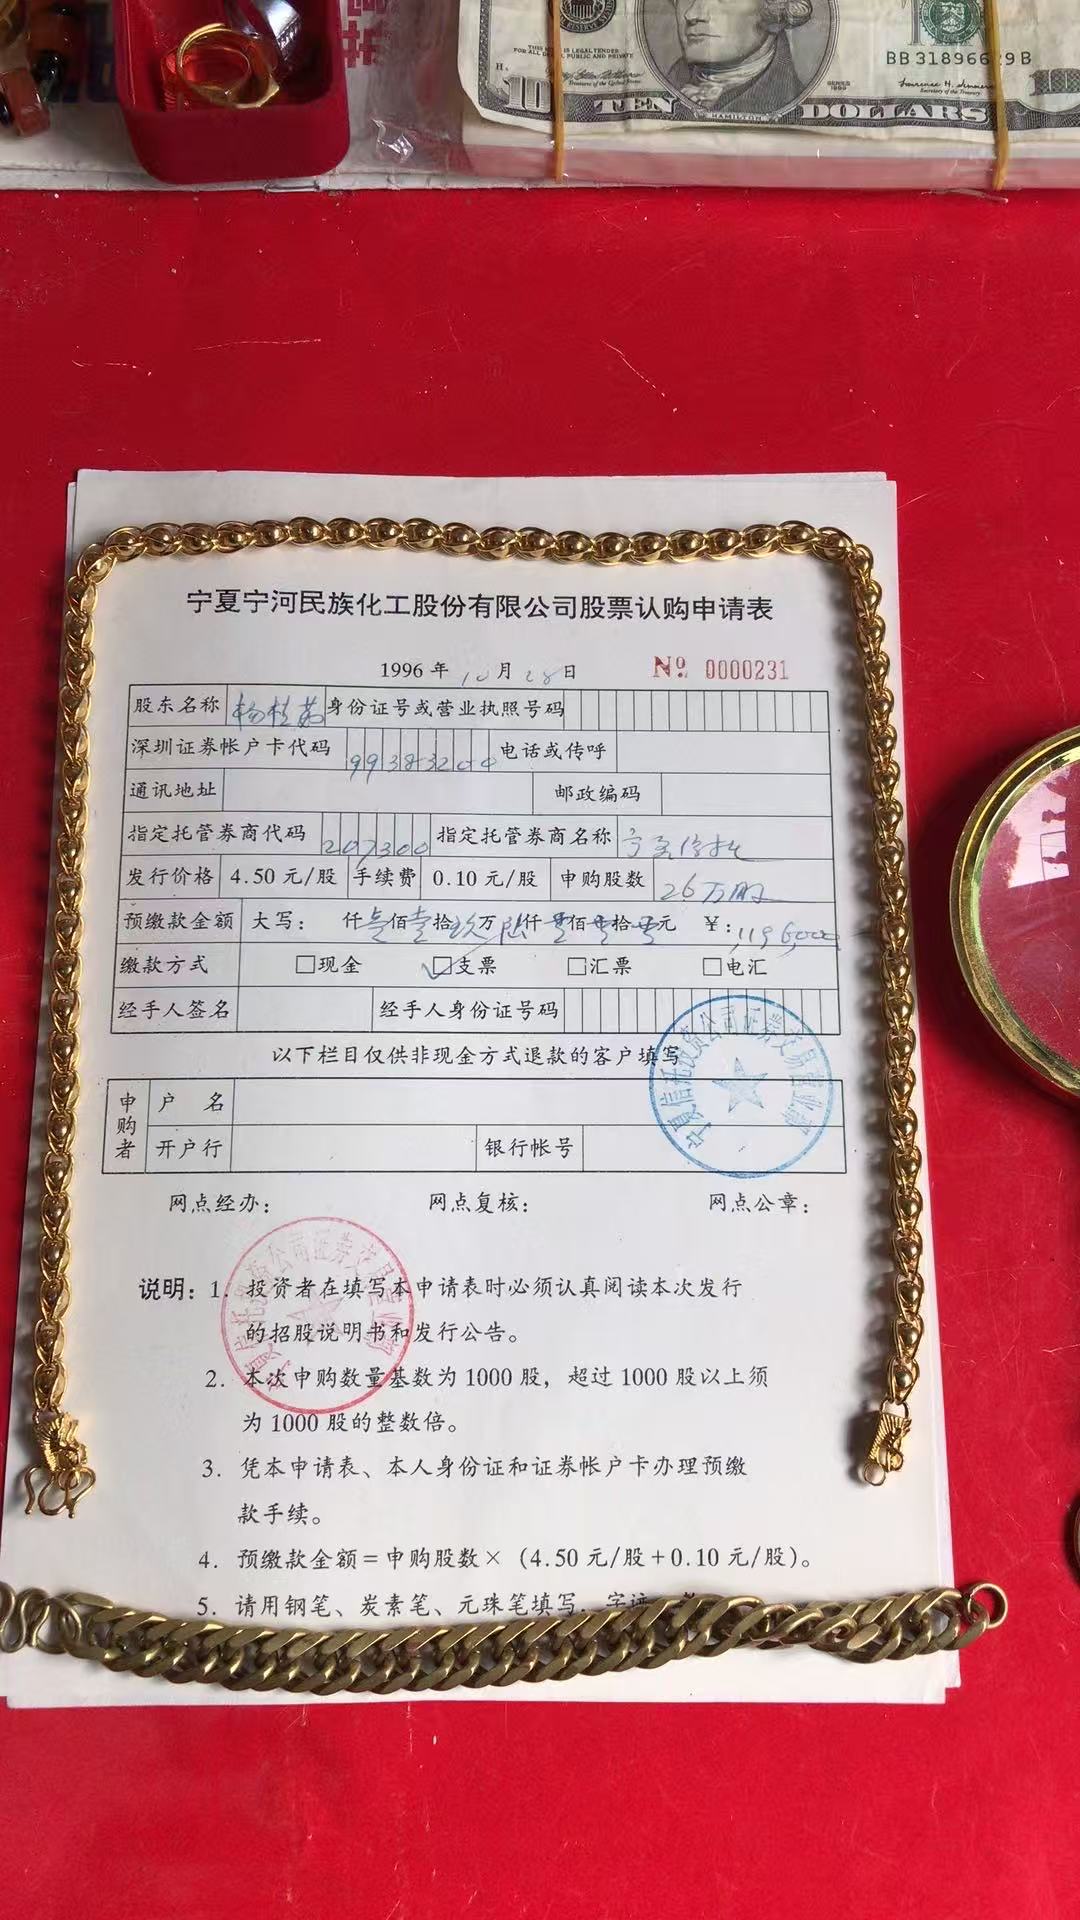 THIS NOTE IS LEGAL TENDER
FOR ALL DEBTS, PUBLIC AND PRIVATE
BB 318966 9 B
SERIES
1999
Treasurer of the United States.
Secretary of the Treasury.
10 TEN HAMILTON DOLLARS
宁夏宁河民族化工股份有限公司股票认购申请表
1996 年 10 月 28 日 № 0000231
股东名称 杨桂茹 身份证号或营业执照号码
深圳证券帐户卡代码 99383200 电话或传呼
通讯地址 邮政编码
指定托管券商代码 207300 指定托管券商名称 宁夏信托
发行价格 4.50 元/股 手续费 0.10 元/股 申购股数 26万股
预缴款金额 大写: 仟壹佰壹拾玖万陆仟零佰零拾零元 ¥:1196000
缴款方式 □现金 ☑支票 □汇票 □电汇
经手人签名 经手人身份证号码
以下栏目仅供非现金方式退款的客户填写
申购者 户 名
开户行 银行帐号
宁夏信托投资公司证券交易营业部
网点经办: 网点复核: 网点公章:
说明: 1. 投资者在填写本申请表时必须认真阅读本次发行
的招股说明书和发行公告。
2. 本次申购数量基数为 1000 股，超过 1000 股以上须
为 1000 股的整数倍。
3. 凭本申请表、本人身份证和证券帐户卡办理预缴
款手续。
4. 预缴款金额=申购股数×（4.50 元/股+0.10 元/股）。
5. 请用钢笔、炭素笔、元珠笔填写，字迹